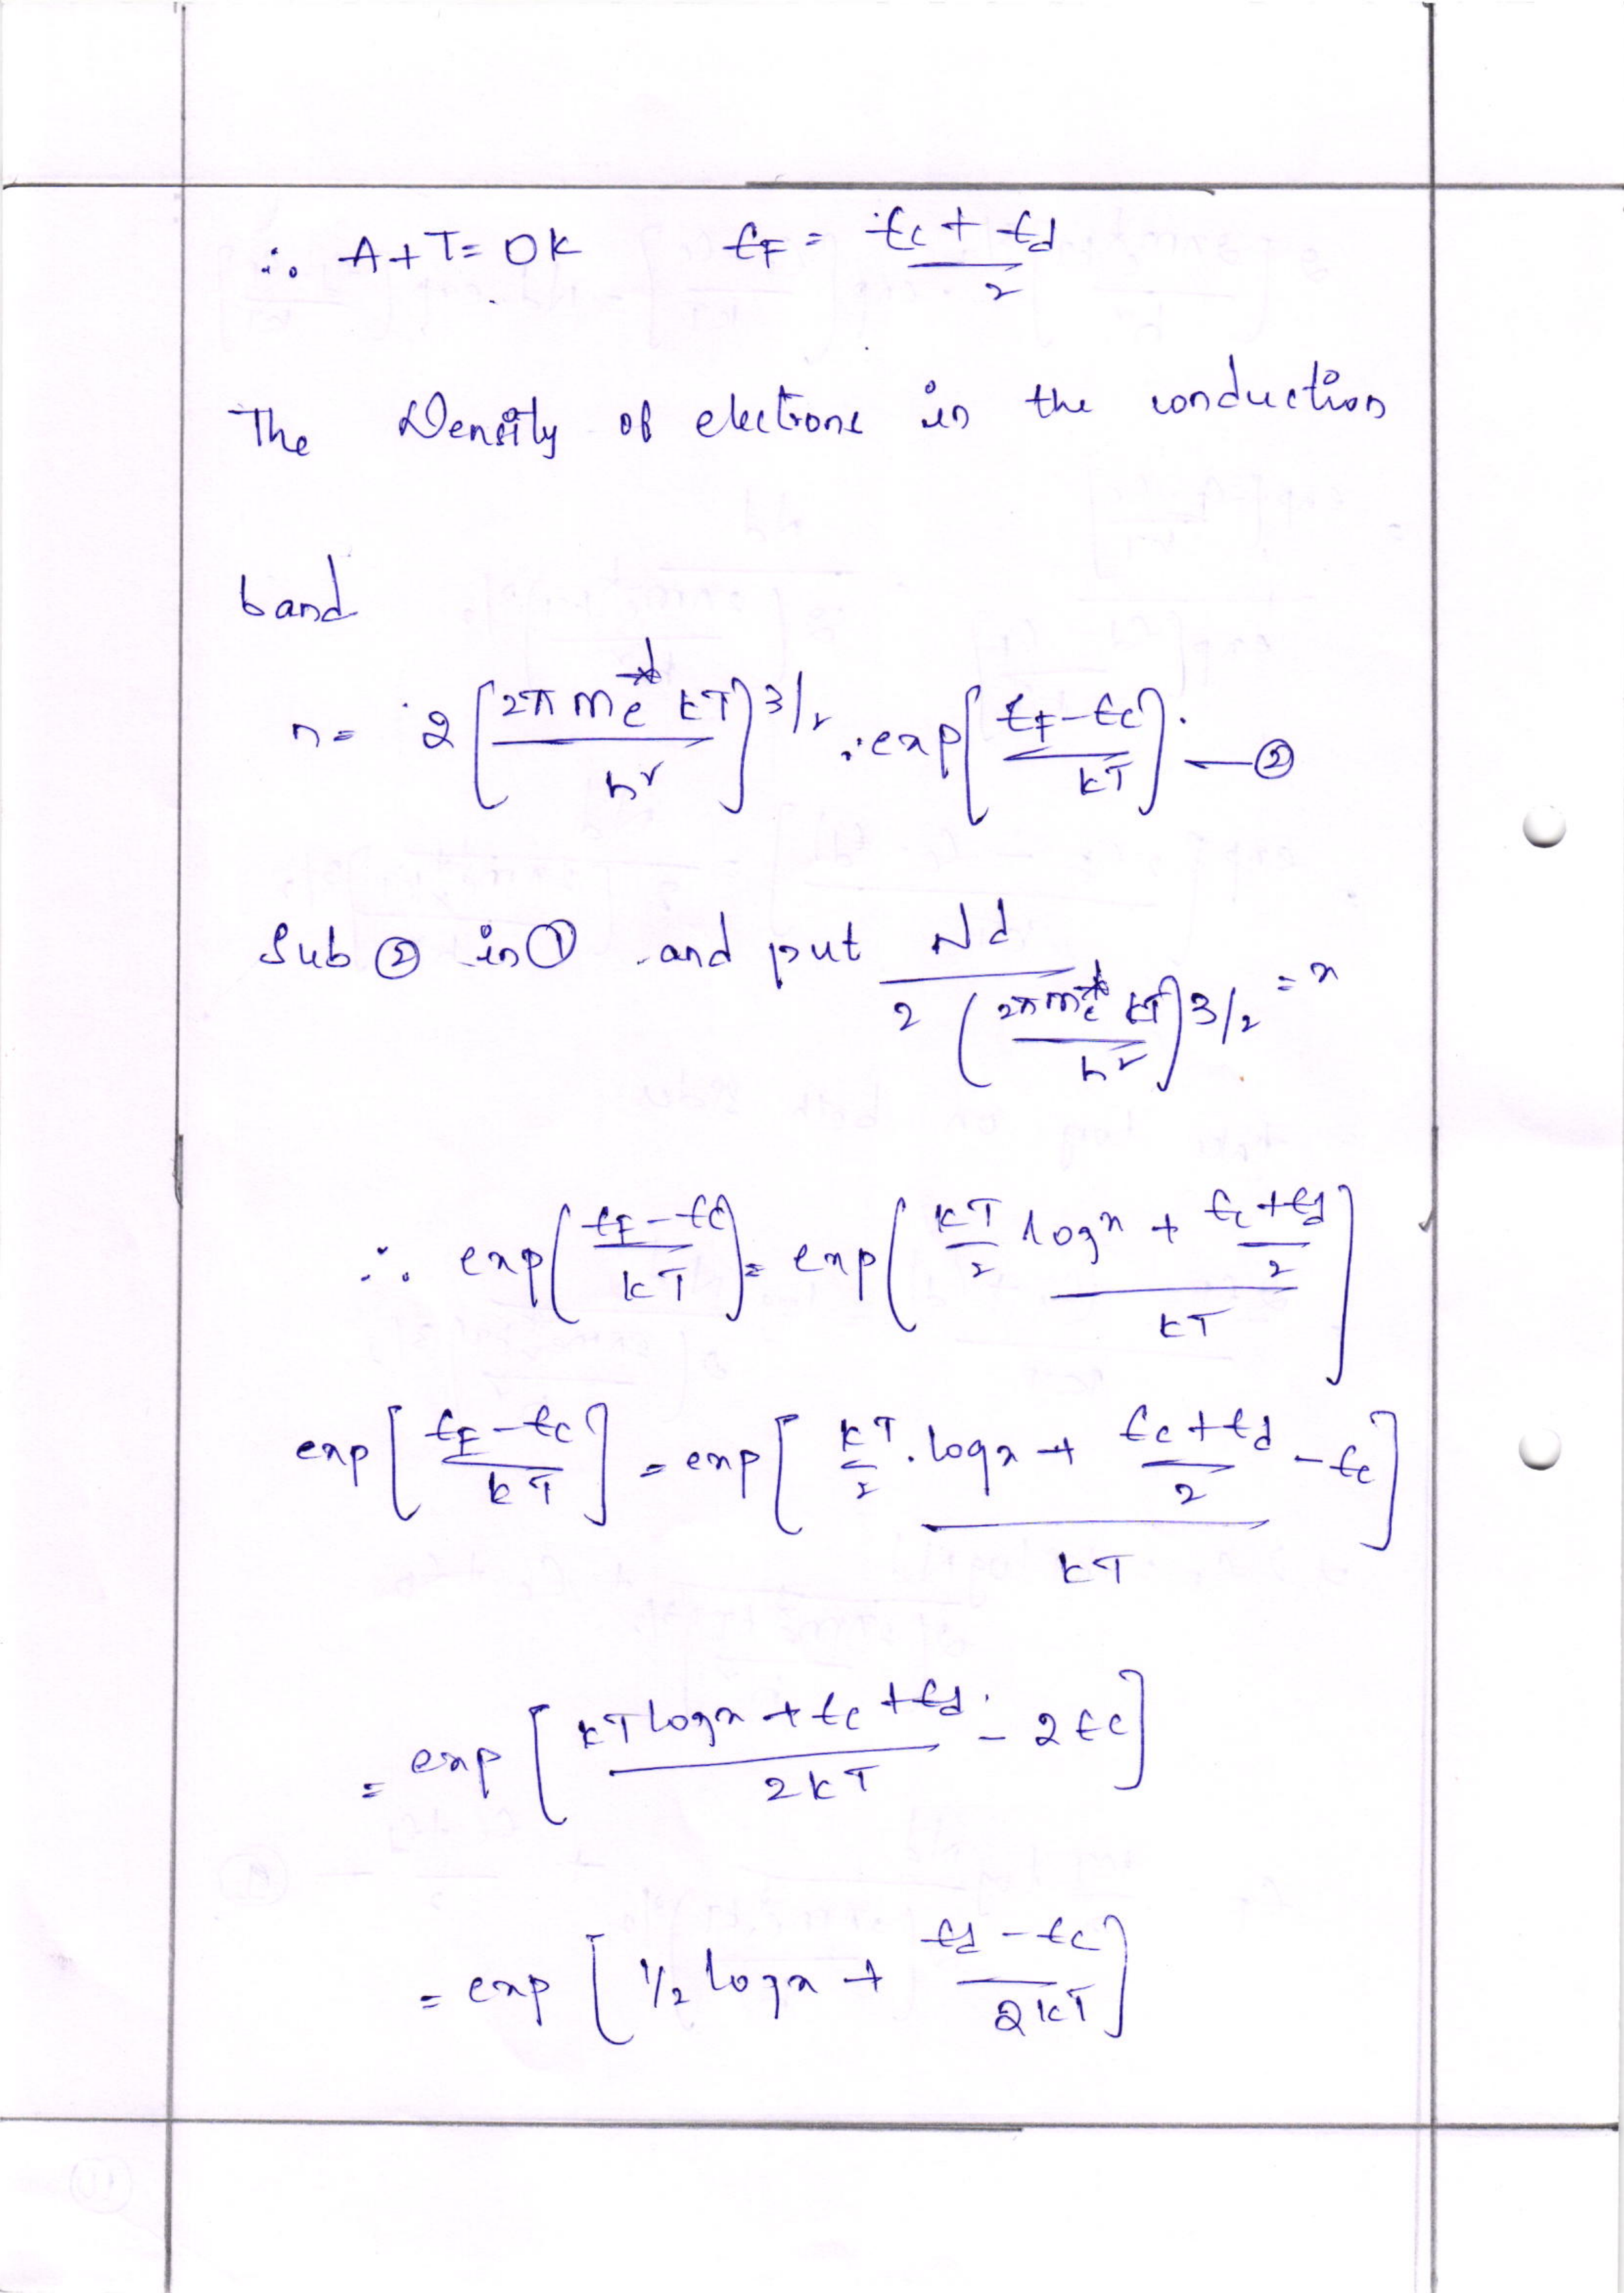 ∴ At T= 0K    EF = (Ec + Ed)/2
The Density of electrons in the conduction
band
n = 2 [2π me* kT / h²]^3/2 . exp[(EF - Ec)/kT] — ②
Sub ② in ① and put Nd / 2 (2π me* kT / h²)^3/2 = x
∴ exp((EF - Ec)/kT) = exp((kT/2 log x + (Ec + Ed)/2) / kT]
exp[(EF - Ec)/kT] = exp[(kT/2 . log x + (Ec + Ed)/2 - Ec) / kT]
= exp[(kT log x + Ec + Ed)/2kT - 2Ec]
= exp[1/2 log x + (Ed - Ec)/2kT]